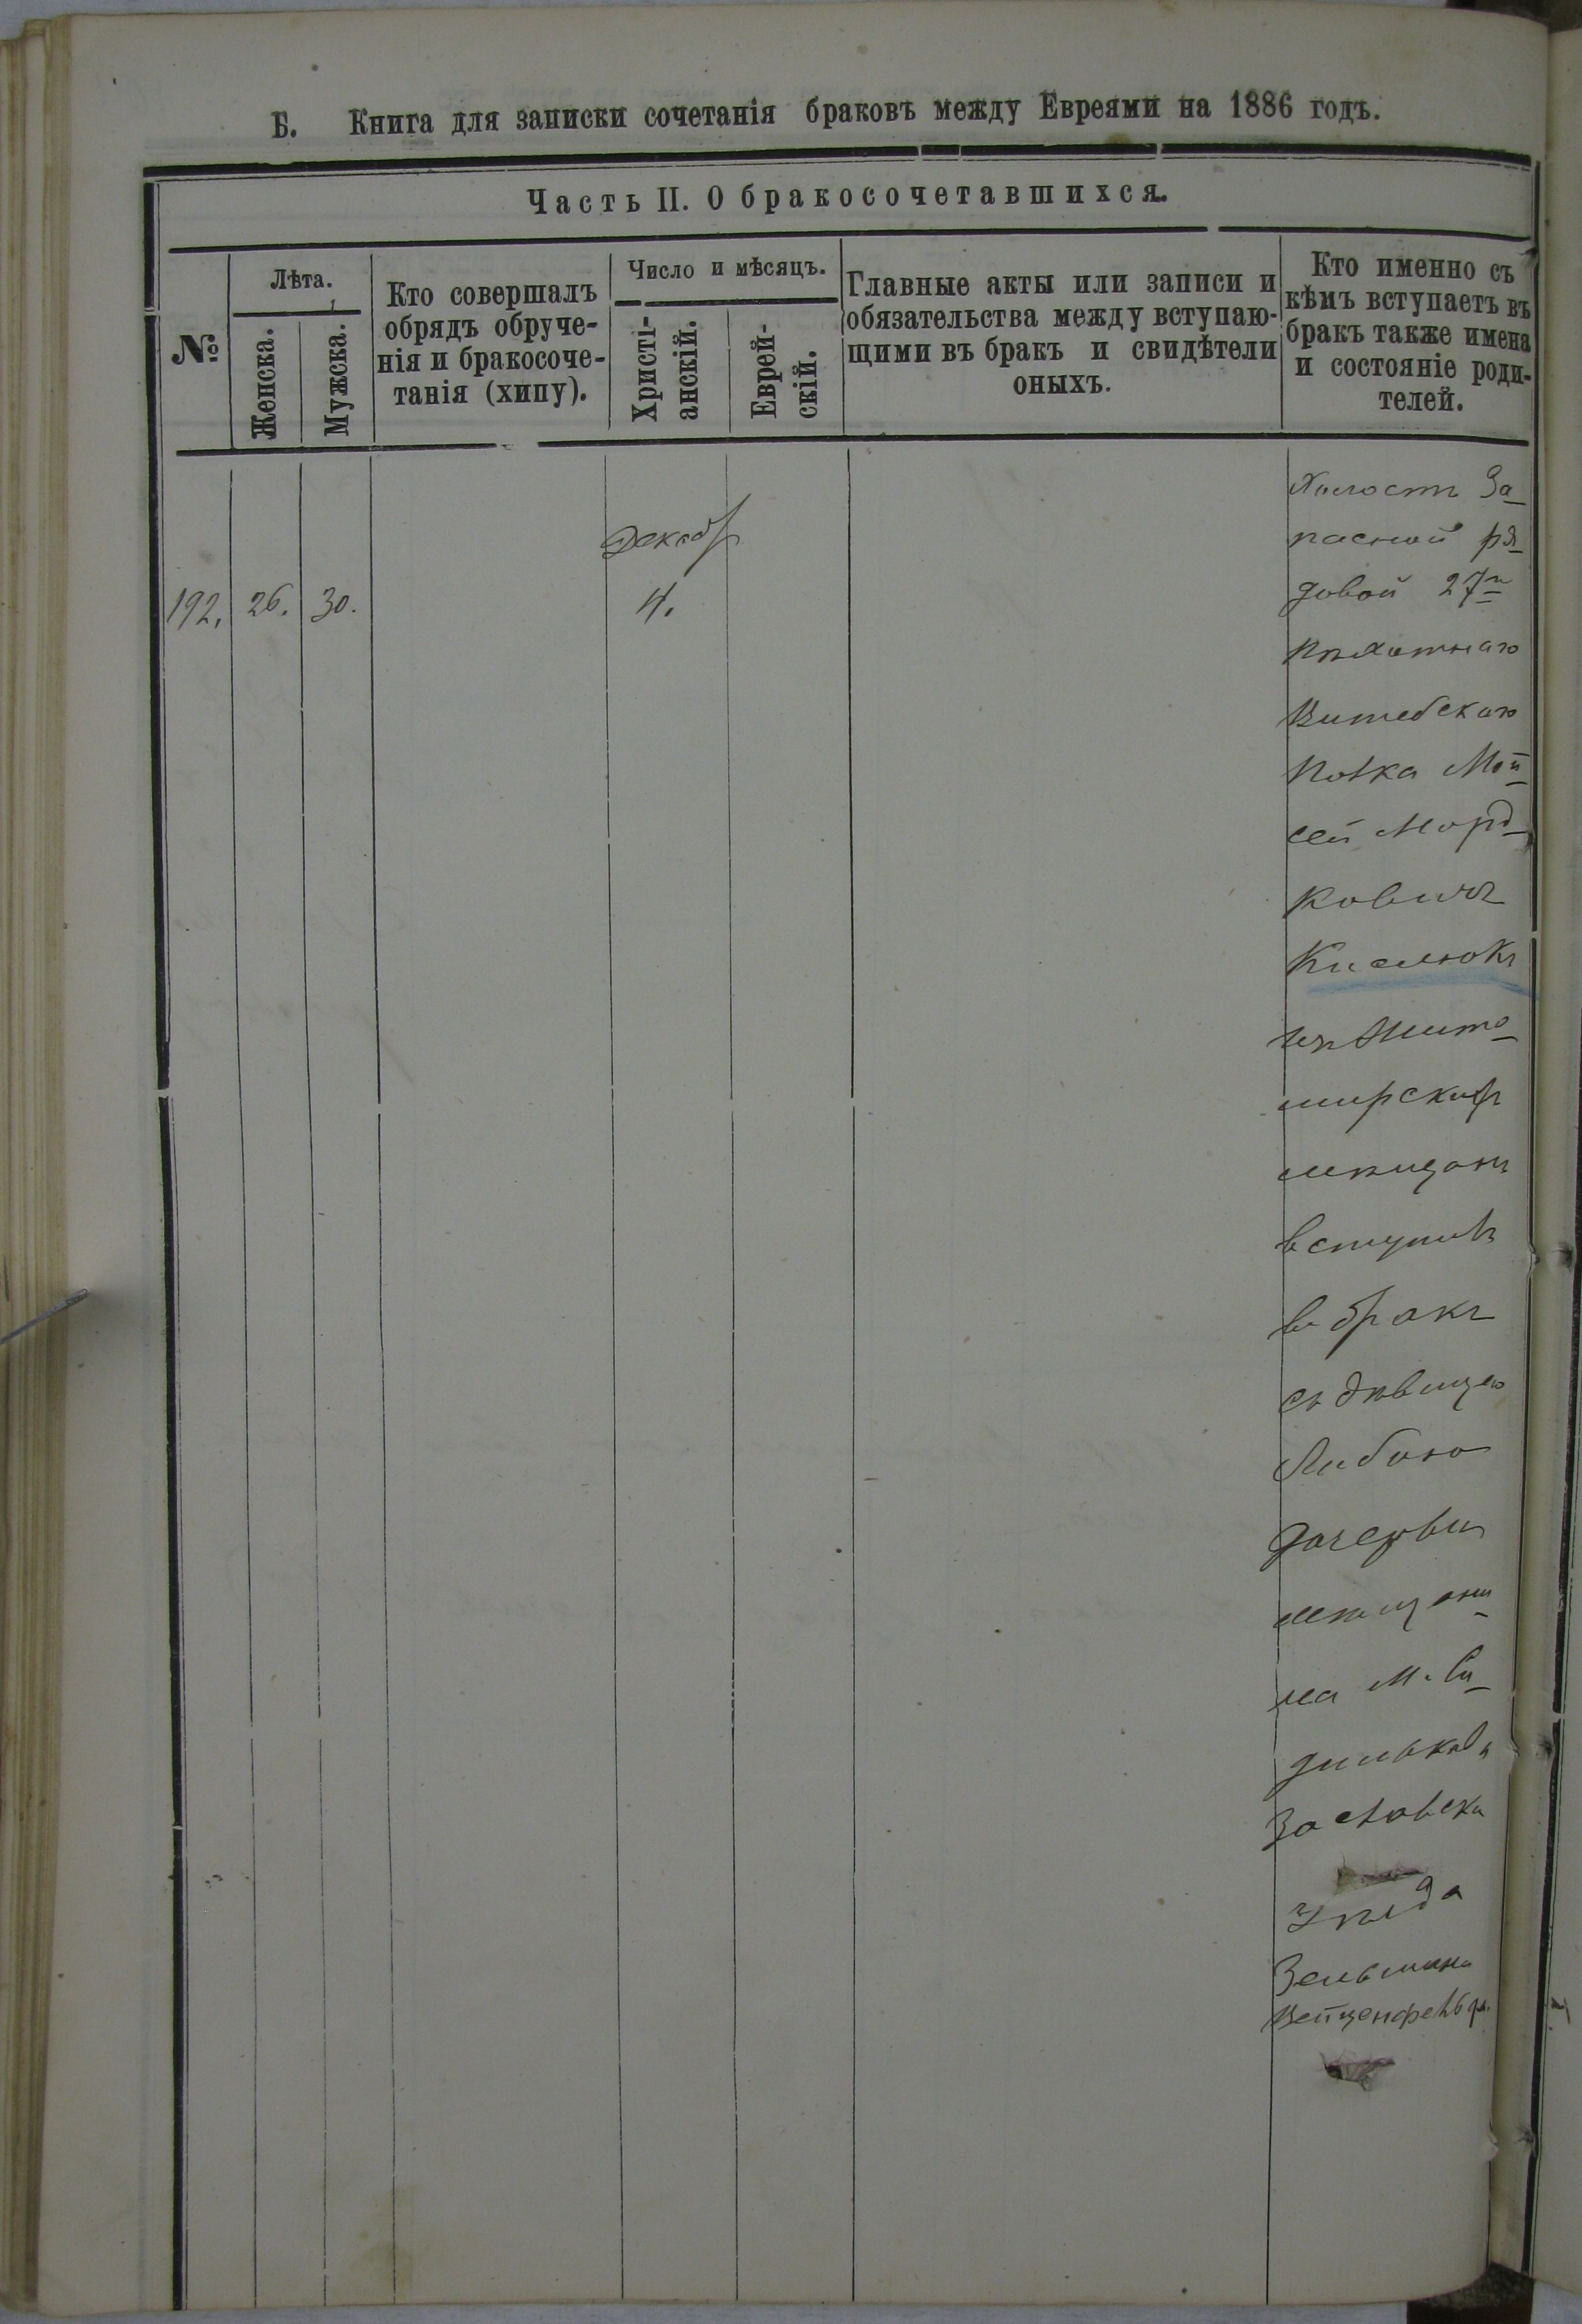 Б. Книга для записки сочетанія браковъ между Евреями на 1886 годъ.
Часть II. О бракосочетавшихся.
№
Лѣта.
Женска.
Мужска.
Кто совершалъ
обрядъ обруче-
нія и бракосоче-
танія (хипу).
Число и мѣсяцъ.
Христі-
анскій.
Еврей-
скій.
Главные акты или записи и
обязательства между вступаю-
щими въ бракъ и свидѣтели
оныхъ.
Кто именно съ
кѣмъ вступаетъ въ
бракъ также имена
и состояніе роди-
телей.
Декабр
192. 26. 30. 4.
Холостъ За
пасной ря
довой 27го
Пѣхотнаго
Витебскаго
Полка Мой
сей Морд
ковичъ
Кислюкъ
изъ Жито
мирскихъ
мѣщанъ
вступилъ
въ бракъ
съ дѣвицею
Либою
дочерью
мѣщани
на м. Су
дилкова
Заславска
уѣзда
Зельмана
Вейценфельда